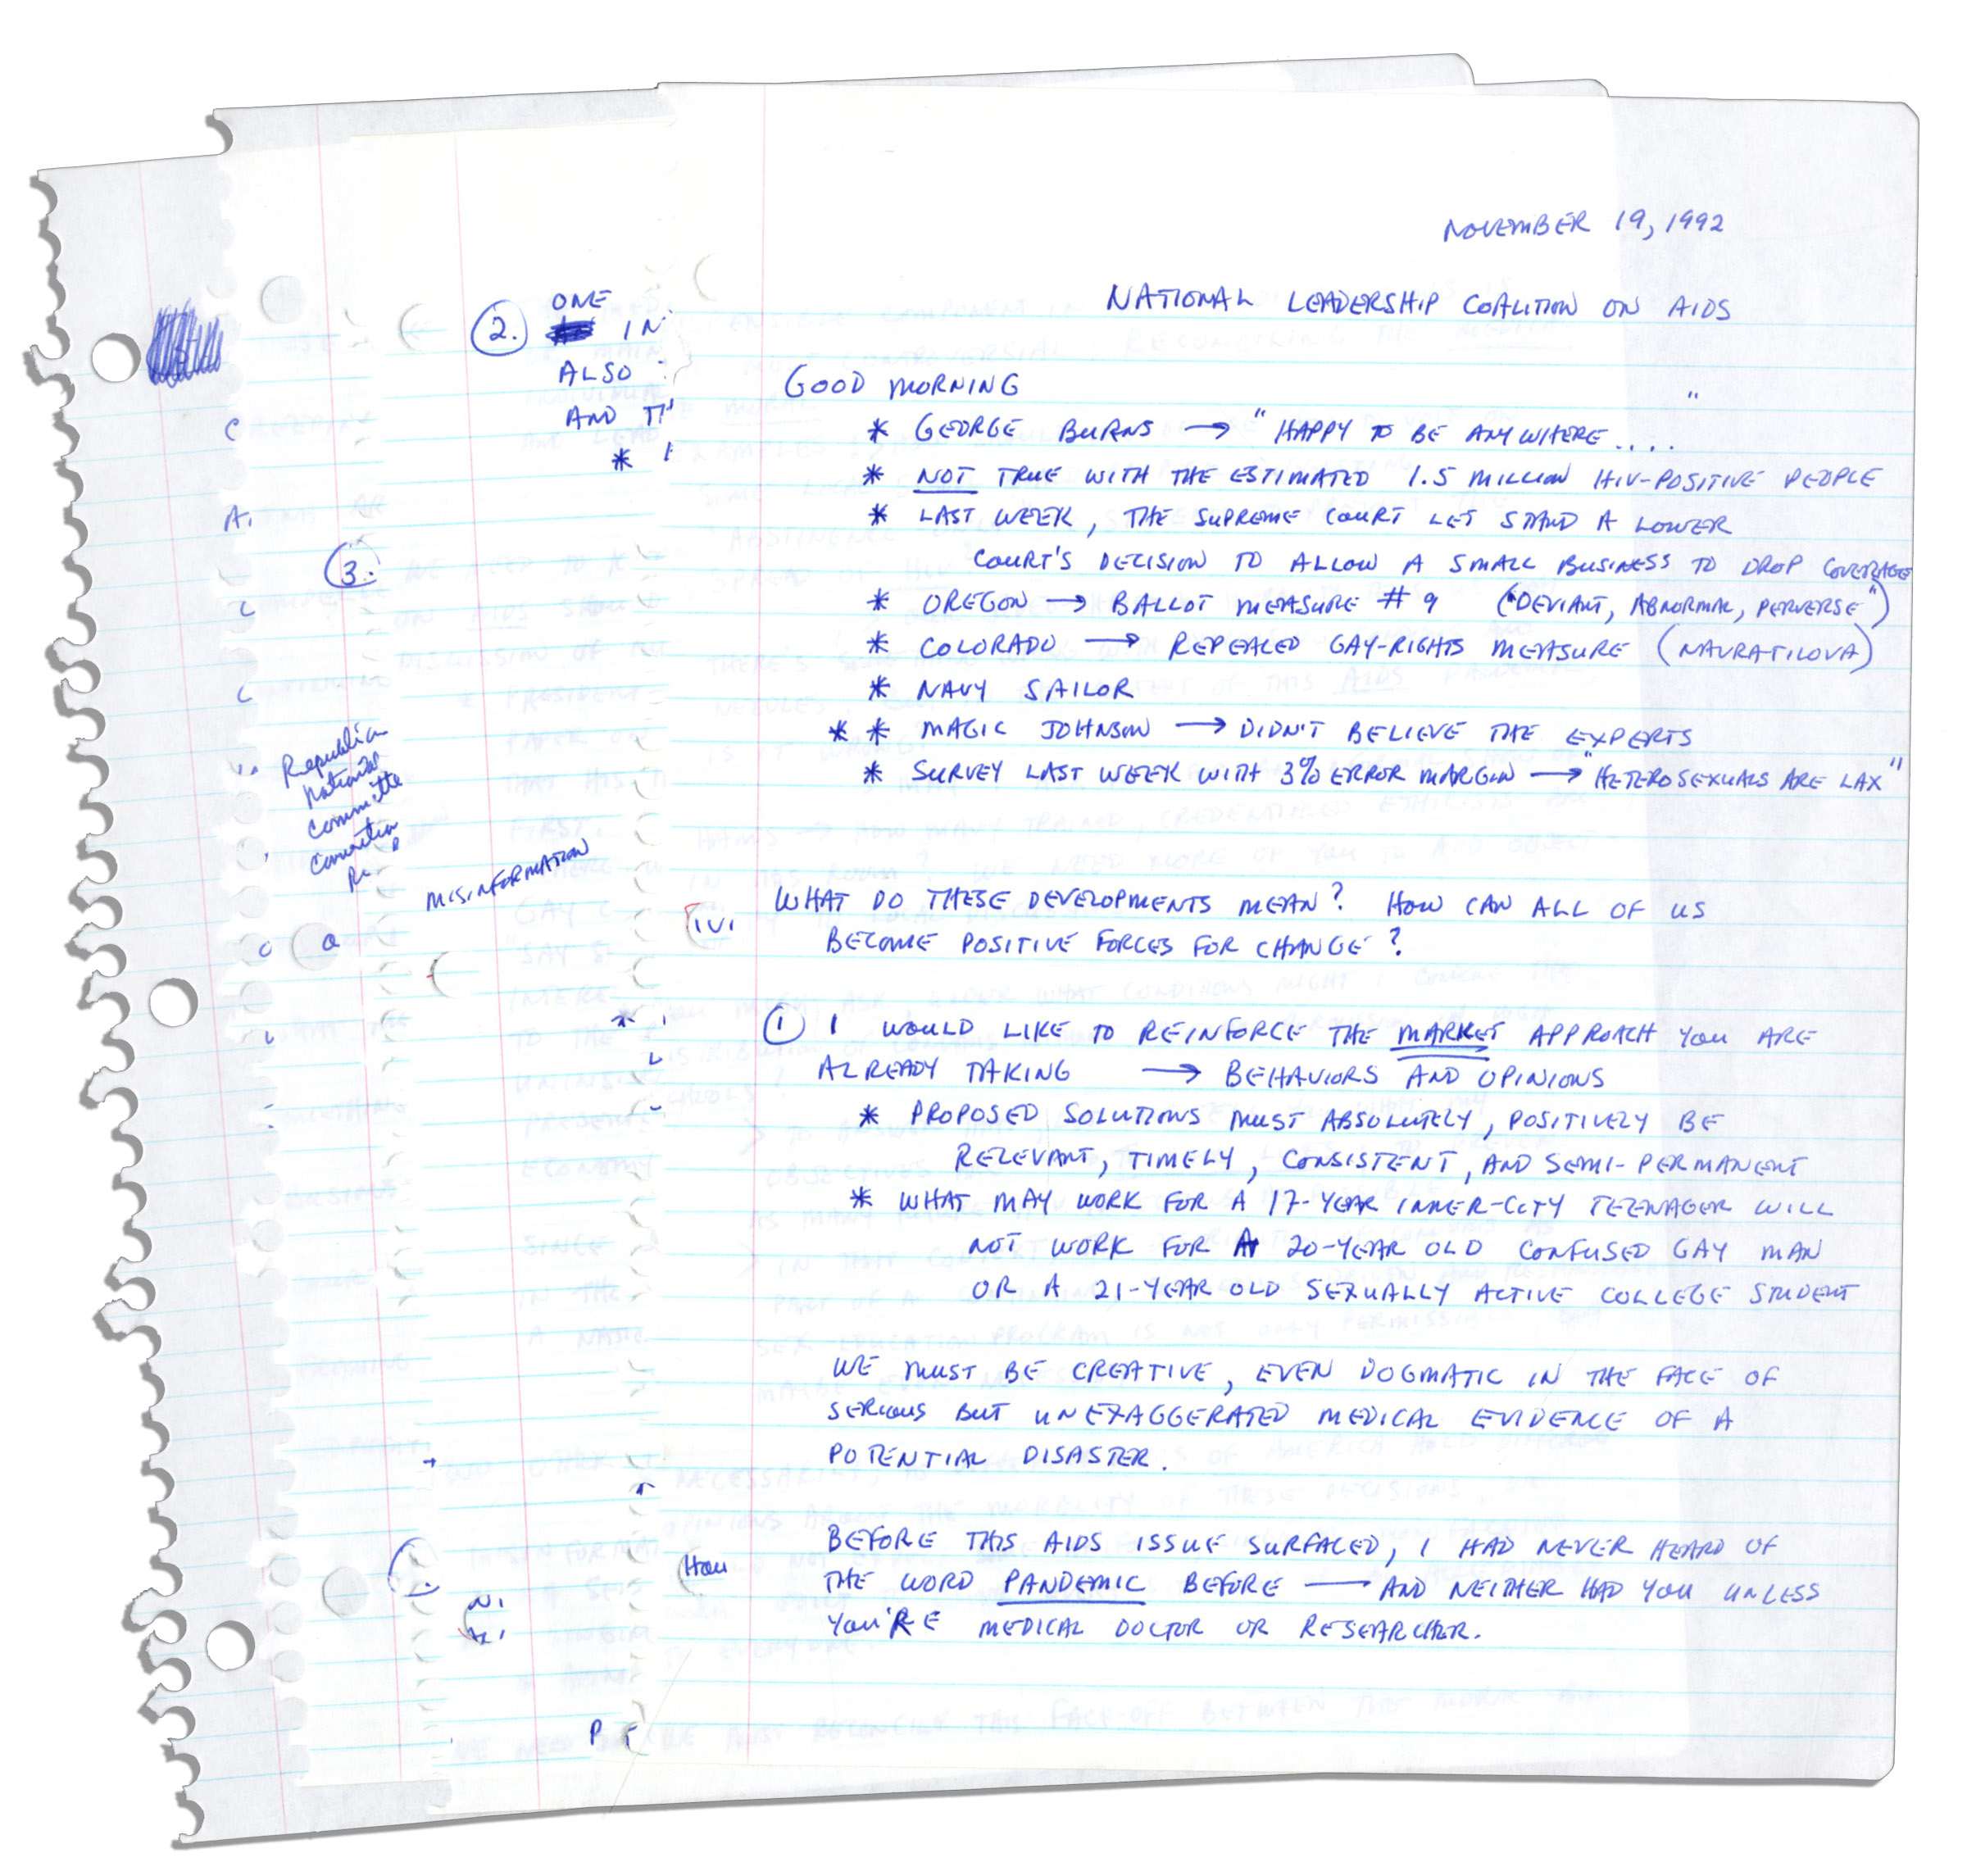 NOVEMBER 19, 1992
NATIONAL LEADERSHIP COALITION ON AIDS
GOOD MORNING
* GEORGE BURNS → "HAPPY TO BE ANYWHERE...."
* NOT TRUE WITH THE ESTIMATED 1.5 MILLION HIV-POSITIVE PEOPLE
* LAST WEEK, THE SUPREME COURT LET STAND A LOWER
COURT'S DECISION TO ALLOW A SMALL BUSINESS TO DROP COVERAGE
* OREGON → BALLOT MEASURE #9 ("DEVIANT, ABNORMAL, PERVERSE")
* COLORADO → REPEALED GAY-RIGHTS MEASURE (NAVRATILOVA)
* NAVY SAILOR
* * MAGIC JOHNSON → DIDN'T BELIEVE THE EXPERTS
* SURVEY LAST WEEK WITH 3% ERROR MARGIN → "HETEROSEXUALS ARE LAX"
WHAT DO THESE DEVELOPMENTS MEAN? HOW CAN ALL OF US
BECOME POSITIVE FORCES FOR CHANGE?
1 I WOULD LIKE TO REINFORCE THE MARKET APPROACH YOU ARE
ALREADY TAKING → BEHAVIORS AND OPINIONS
* PROPOSED SOLUTIONS MUST ABSOLUTELY, POSITIVELY BE
RELEVANT, TIMELY, CONSISTENT, AND SEMI-PERMANENT
* WHAT MAY WORK FOR A 17-YEAR INNER-CITY TEENAGER WILL
NOT WORK FOR A 20-YEAR OLD CONFUSED GAY MAN
OR A 21-YEAR OLD SEXUALLY ACTIVE COLLEGE STUDENT
WE MUST BE CREATIVE, EVEN DOGMATIC IN THE FACE OF
SERIOUS BUT UNEXAGGERATED MEDICAL EVIDENCE OF A
POTENTIAL DISASTER.
BEFORE THIS AIDS ISSUE SURFACED, I HAD NEVER HEARD OF
THE WORD PANDEMIC BEFORE — AND NEITHER HAD YOU UNLESS
YOU'RE MEDICAL DOCTOR OR RESEARCHER.
2. ONE
IN
ALSO
AND
*
3.
Republican
National
Committee
Convention
MISINFORMATION